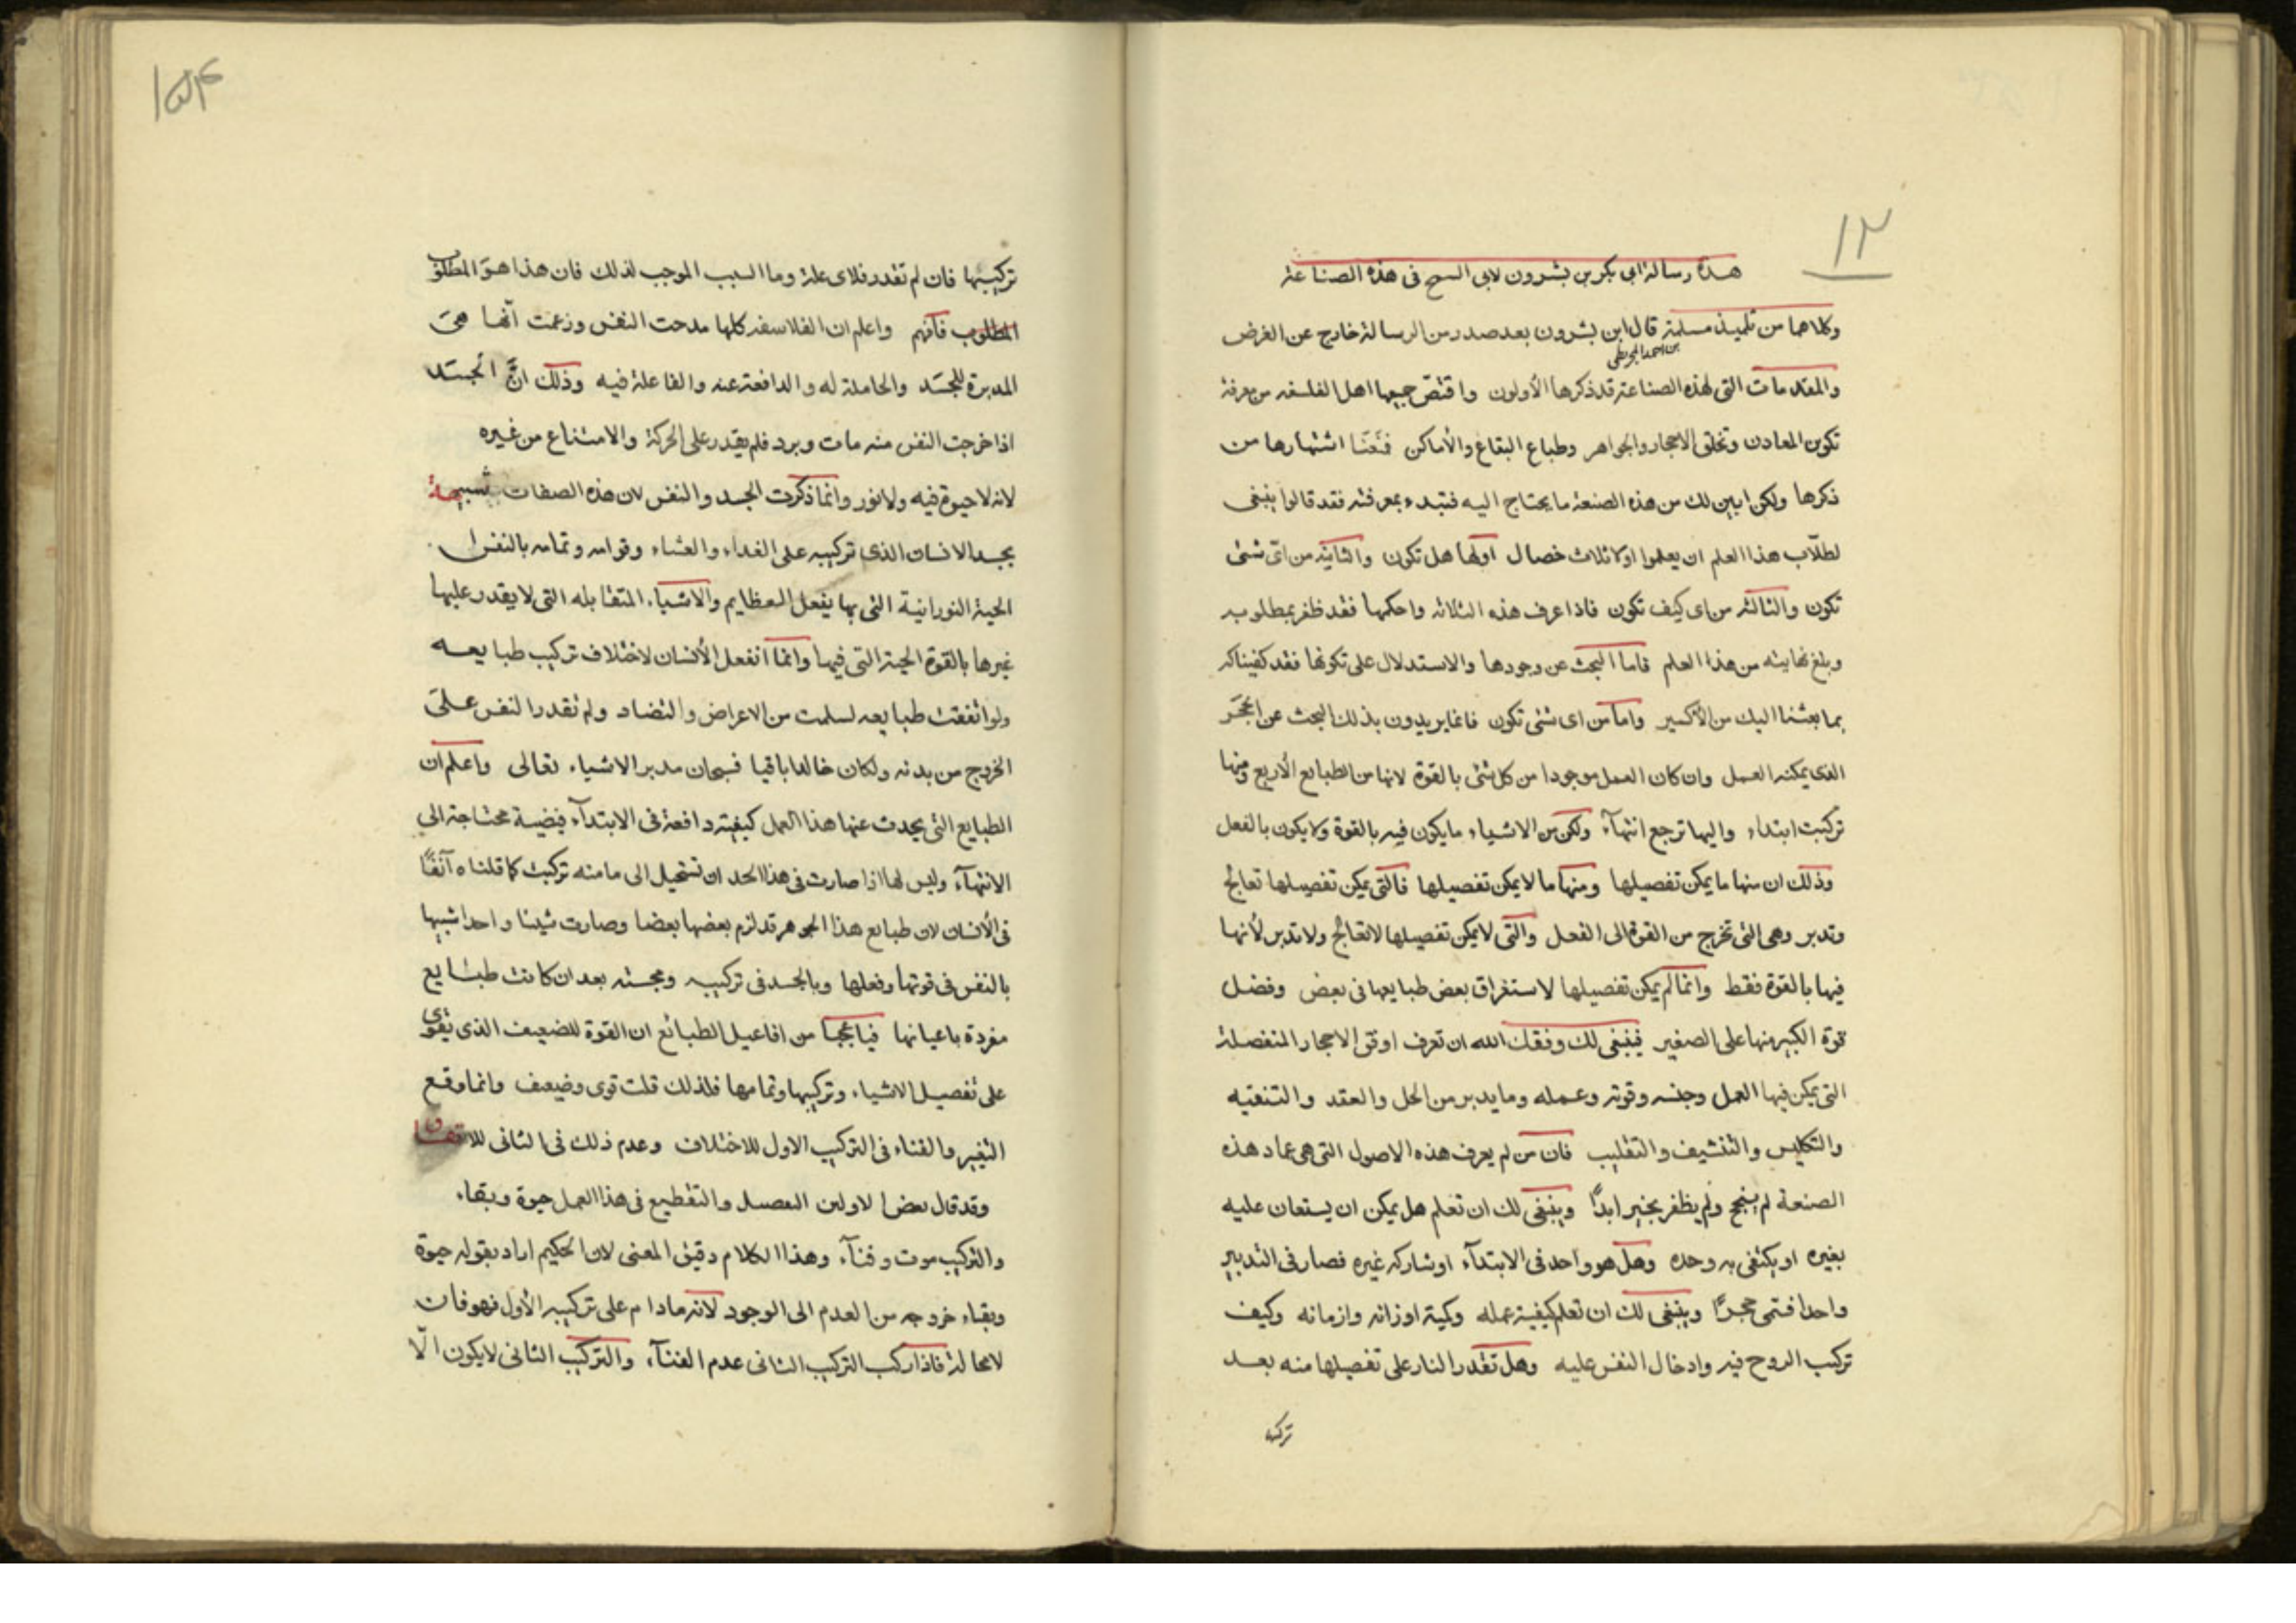 ١٢
هذه رسالة ابى بكر بن بشرون لابى السمح فى هذه الصناعة
وكلاهما من تلميذ مسلمة قال ابن بشرون بعد صدر من الرسالة خارج عن الغرض
بن احمد المجريطى
والمقدمات التى لهذه الصناعة قد ذكرها الأولون واقتصّ جميعها اهل الفلسفه من معرفة
تكوين المعادن وتخلق الاحجار والجواهر وطباع البقاع والأماكن فمنعنا اشتهارها من
ذكرها ولكن ابين لك من هذه الصنعة ما يحتاج اليه فتبدء بمعرفته فقد قالوا ينبغى
لطلّاب هذا العلم ان يعلموا اولا ثلاث خصال اولها هل تكون والثانيه من اىّ شئى
تكون والثالثه من اى كيف تكون فاذا عرف هذه الثلاثه واحكمها فقد ظفر بمطلوبه
وبلغ نهايته من هذا العلم فاما البحث عن وجودها والاستدلال على تكونها فقد كفيناكه
بما بعثنا اليك من الأكسير واما من اى شئى تكون فانما يريدون بذلك البحث عن الحجر
الذى يمكنه العمل وان كان العمل موجودا من كل شئى بالقوة لانها من الطبايع الأربع ومنها
تركبت ابتداء واليها ترجع انتهآء ولكن من الاشياء ما يكون فيه بالقوة ولا يكون بالفعل
وذلك ان منها ما يمكن تفصيلها ومنها ما لا يمكن تفصيلها فالتى يمكن تفصيلها تعالج
وتدبر وهى التى تخرج من القوة الى الفعل والتى لا يمكن تفصيلها لا تعالج ولا تدبر لأنها
فيها بالقوة فقط وانما لم يمكن تفصيلها لاستغراق بعض طبايعها فى بعض وفضل
قوة الكبير منها على الصغير فينبغى لك وفقك الله ان تعرف اوفق الاحجار المنفصلة
التى يمكن فيها العمل وجنسه وقوته وعمله وما يدبر من الحل والعقد والتنقيه
والتكليس والتنشيف والتقليب فان من لم يعرف هذه الاصول التى هى عماد هذه
الصنعة لم ينجح ولم يظفر بخير ابدًا وينبغى لك ان تعلم هل يمكن ان يستعان عليه
بغيره او يكتفى به وحده وهل هو واحد فى الابتدآء او شاركه غيره فصار فى التدبير
واحدا فسمى حجرًا وينبغى لك ان تعلم كيفية عمله وكمية اوزانه وازمانه وكيف
تركب الروح فيه وادخال النفس عليه وهل تقدر النار على تفصيلها منه بعد
تركيبها
١٥٤
تركيبها فان لم تقدر فلاى علة وما السبب الموجب لذلك فان هذا هو المطلوب
المطلوب فافهم واعلم ان الفلاسفه كلها مدحت النفس وزعمت أنها هى
المدبرة للجسد والحاملة له والدافعة عنه والفاعلة فيه وذلك انّ الجسد
اذا خرجت النفس منه مات وبرد فلم يقدر على الحركة والامتناع من غيره
لانه لا حيوة فيه ولا نور وانما ذكرت الجسد والنفس لان هذه الصفات شبيهة
بجسد الانسان الذى تركيبه على الغداء والعشاء وقوامه وتمامه بالنفس
الحية النورانية التى بها يفعل العظايم والاشياء المتقابله التى لا يقدر عليها
غيرها بالقوة الحية التى فيها وانما انفعل الأنسان لاختلاف تركيب طبايعه
ولو اتفقت طبايعه لسلمت من الاعراض والتضاد ولم تقدر النفس على
الخروج من بدنه ولكان خالدا باقيا فسبحان مدبر الاشياء تعالى واعلم ان
الطبايع التى يحدث عنها هذا العمل كيفيته دافعة فى الابتدآء فيضية محتاجة الى
الانتهآء وليس لها اذا صارت فى هذا الحد ان تستحيل الى ما منه تركبت كما قلناه آنفًا
فى الأنسان لان طبايع هذا الجوهر قد لزم بعضها بعضا وصارت شيئا واحدا شبيها
بالنفس فى قوتها وفعلها وبالجسد فى تركيبه ومجسته بعد ان كانت طبايع
مفردة باعيانها فيا عجبا من افاعيل الطبائع ان القوة للضعيف الذى يقوى
على تفصيل الاشياء وتركيبها وتمامها فلذلك قلت قوى وضعيف وانما وقع
التغير والفناء فى التركيب الاول للاختلاف وعدم ذلك فى الثانى للاتفاق
وقد قال بعض الاولين التفصيل والتقطيع فى هذا العمل حيوة وبقاء
والتركيب موت وفنآء وهذا الكلام دقيق المعنى لان الحكيم اراد بقوله حيوة
وبقاء خروجه من العدم الى الوجود لانه مادام على تركيبه الأول فهو فان
لامحالة فاذا ركب التركيب الثانى عدم الفنآء والتركيب الثانى لا يكون الّا